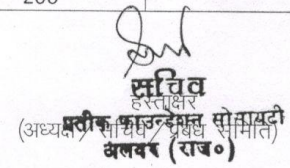 200
सचिव
हस्ताक्षर
प्रतीक फाउन्डेशन सोसायटी
(अध्यक्ष / सचिव / प्रबंध समिति)
अलवर (राज०)